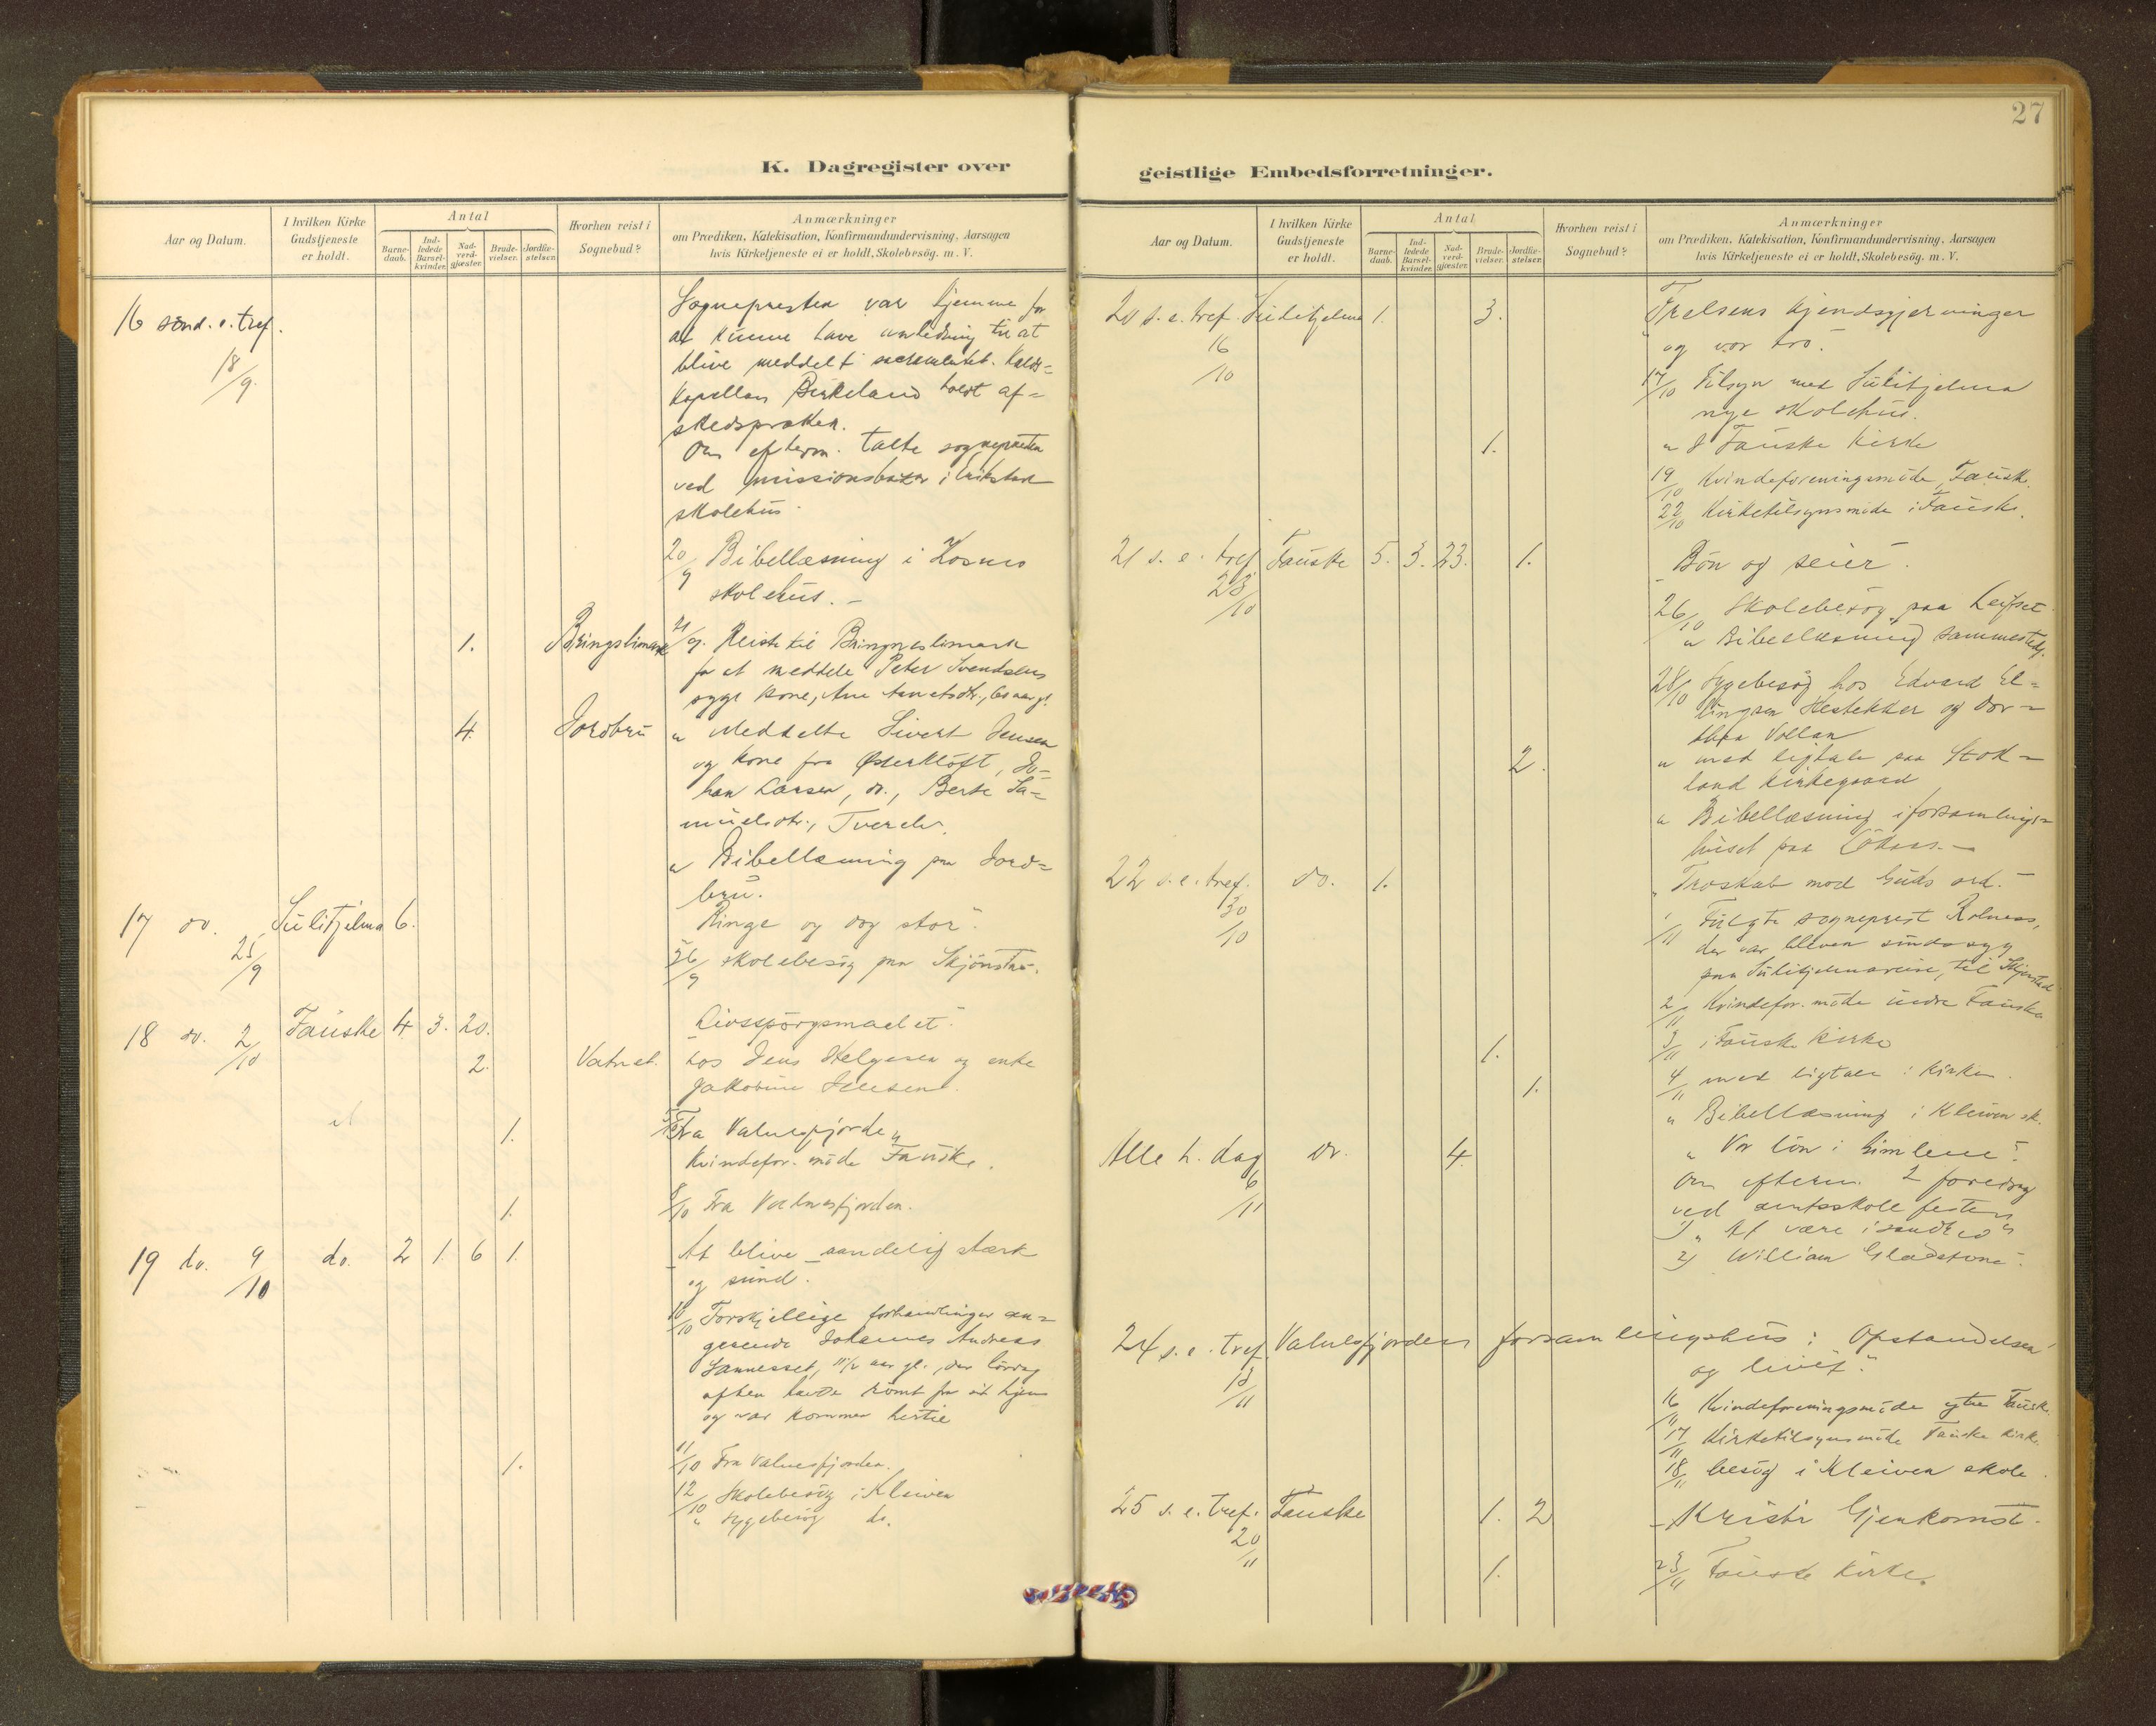 27
K. Dagregister over
Aar og Datum.
I hvilken Kirke Gudstjeneste er holdt.
Antal
Barne-daab.
Ind-ledede Barsel-kvinder.
Nad-verd-gjæster.
Brude-vielser.
Jordfæ-stelser.
Hvorhen reist i Sognebud?
Anmærkninger
om Prædiken, Katekisation, Konfirmandundervisning, Aarsagen
hvis Kirketjeneste ei er holdt, Skolebesög. m. V.
16 sönd. e. tref. 18/9.
Sognepresten var hjemme for
at kunne have anledning til at
blive meddelt sacramentet. Kalds-
kapellan Birkeland holdt af-
skedspræken.
Om efterm. talte sognepresten
ved missionsbazar i Erikstad
skolehus.
20/9 Bibellæsning i Kosmo
skolehus. -
1. Bringslimark 21/9. Reiste til Bringneslimark
for at meddele Peter Svendsens
syge kone, Ane
4. Jordbru " Meddelte Sivert Jensen
og kone fra Østerkløft, Jo-
han Larsen, do., Berte Sa-
muelsdtr., Tverelv.
" Bibellæsning paa Jord-
bru.
17 do. 25/9 Sulitjelma 6. Ringe og dog stor".
26/9 skolebesög paa Skjönstaa.
18 do. 2/10 Fauske 4. 3. 20. Livsspörgsmaalet".
2. Vatnet. hos Jens Helgesen og enke
Jakobine Jensen.
1. Fra Valnesfjorden
Kvindefor. möde Fauske.
1. 8/10 Fra Valnesfjorden.
19 do. 9/10 do. 2 1. 6 1. At blive aandelig stærk
og sund".
10/10 Forskjellige forhandlinger an-
gaaende Johannes Andreas
aar gl., der lördag
aften havde römt fra sit hjem
og var kommen hertil
1. 11/10 Fra Valnesfjorden.
12/10 Skolebesög i Kleiven
" sygebesög do.
geistlige Embedsforretninger.
Aar og Datum.
I hvilken Kirke Gudstjeneste er holdt.
Antal
Barne-daab.
Ind-ledede Barsel-kvinder.
Nad-verd-gjæster.
Brude-vielser.
Jordfæ-stelser.
Hvorhen reist i Sognebud?
Anmærkninger
om Prædiken, Katekisation, Konfirmandundervisning, Aarsagen
hvis Kirketjeneste ei er holdt, Skolebesög. m. V.
20 s. e. tref. 16/10 Sulitjelma 1. 3. Frelsens kjendsgjerninger
og vor tro".
17/10 Tilsyn med Sulitjelma
nye skolehus.
1. " I Fauske Kirke
19/10 Kvindeforeningsmöde, Fauske.
22/10 Kirketilsynsmöde i Fauske.
21 s. e. tref. 23/10 Fauske 5. 3. 23. 1. Bön og seier".
26/10 Skolebesög paa Leifset
" Bibellæsning sammesteds.
28/10 Sygebesög hos Edvard El-
lingsen Hestekker og Dor-
thea Vollan
2. " med ligtale paa Stok-
land kirkegaard
" Bibellæsning i forsamlings-
huset paa
22 s. e. tref. 30/10 do. 1. Troskab mod Guds ord.-
1/11 Fulgte sogneprest Rolness,
der var bleven sindssyg
paa Sulitjelmareise, til Skjerstad
2/11 Kvindefor. möde indre Fauske
1. 3/11 i Fauske Kirke
1. 4/11 med ligtale i kirken.
" Bibellæsning i Kleiven sk.
Alle h. dag 6/11 do. 4. " Vor lön i himlene".
Om efterm. 2 foredrag
ved amtsskole festen
1) "At være i sandhed"
2) William Gladstone".
24 s. e. tref. 13/11 Valnesfjorden forsamlingshus: Opstandelsen
og livet".
16/11 Kvindeforeningsmöde ytre Fauske.
17/11 Kirketilsynsmöde Fauske kirke.
18/11 besög i Kleiven skole.
25 s. e. tref. 20/11 Fauske 1. 2 Kristi Gjenkomst.
1. 23/11 Fauske Kirke.